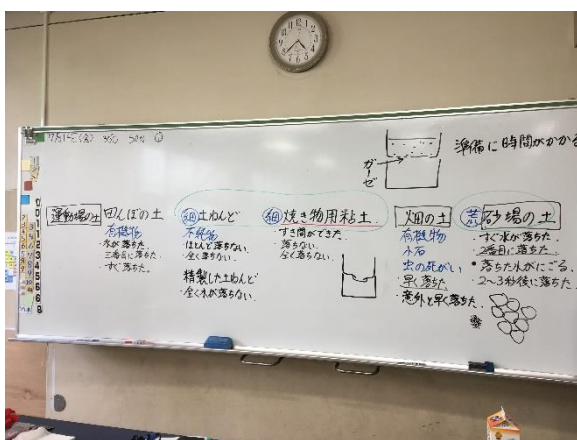 準備に時間がかかる
ガーゼ
運動場の土
田んぼの土
有機物
・水が落ちた。
・三番目に落ちた。
・すぐ落ちた。
細 土ねんど
不純物
・ほとんど落ちない
・全く落ちない。
精製した土ねんど
・全く水が落ちない。
細 焼き物用粘土
・すき間ができた
・落ちない。
・全く落ちない。
畑の土
有機物
小石
虫の死がい
・早く落ちた。
・意外と早く落ちた。
荒 砂場の土
・すぐ水が落ちた。
・2番目に落ちた。
・落ちた水がにごる。
・2~3秒後に落ちた。